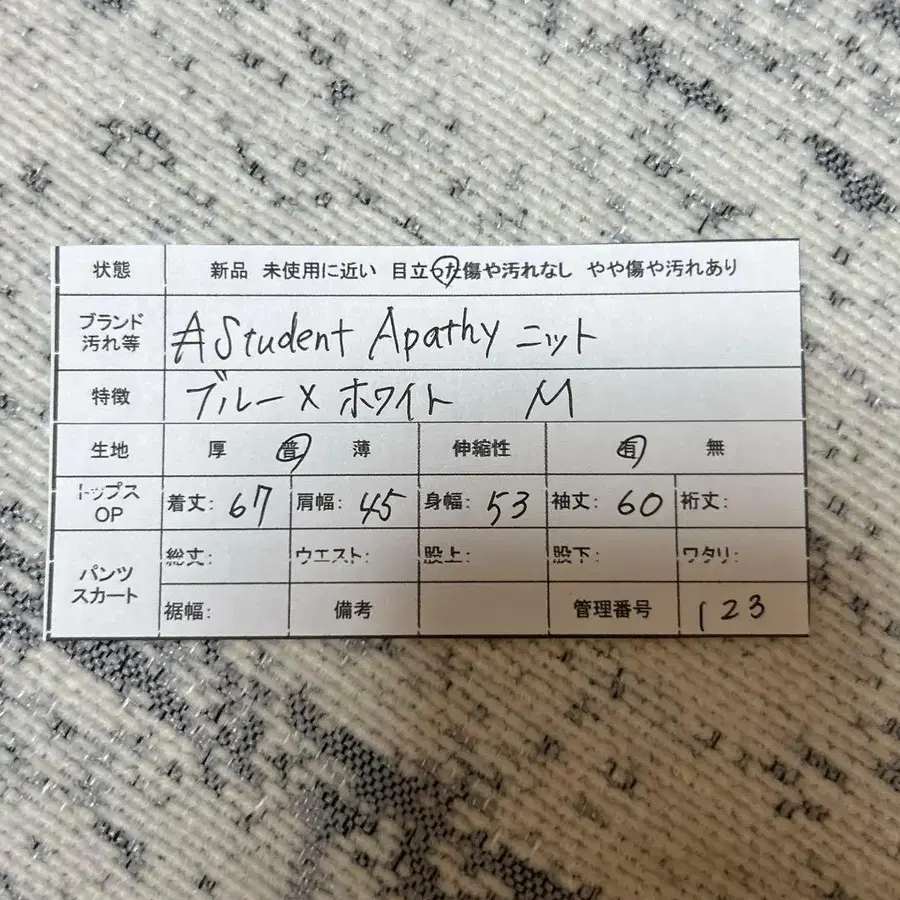 状態 新品 未使用に近い 目立った傷や汚れなし やや傷や汚れあり
ブランド
汚れ等
A Student Apathy ニット
特徴 ブルー×ホワイト M
生地 厚 普 薄 伸縮性 有 無
トップス
OP
着丈: 67 肩幅: 45 身幅: 53 袖丈: 60 裄丈:
パンツ
スカート
総丈: ウエスト: 股上: 股下: ワタリ:
裾幅: 備考 管理番号 123